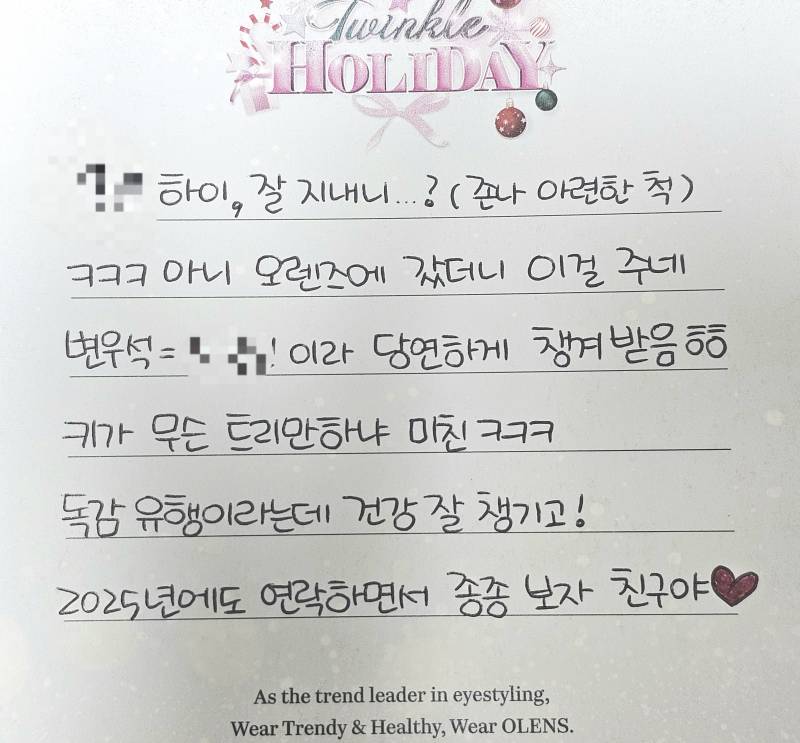 Twinkle
HOLIDAY
하이, 잘 지내니...? (존나 아련한 척)
ㅋㅋㅋ 아니 오렌즈에 갔더니 이걸 주네
변우석 = ! 이라 당연하게 챙겨 받음 ㅎㅎ
키가 무슨 트리만하냐 미친 ㅋㅋㅋ
독감 유행이라는데 건강 잘 챙기고!
2025년에도 연락하면서 종종 보자 친구야♥
As the trend leader in eyestyling,
Wear Trendy & Healthy, Wear OLENS.